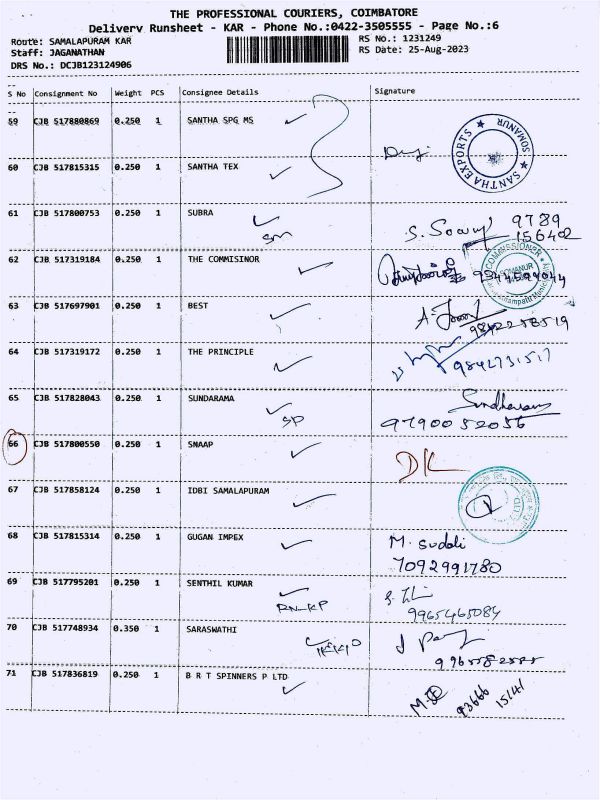 THE PROFESSIONAL COURIERS, COIMBATORE
Delivery Runsheet - KAR - Phone No.:0422-3505555 - Page No.:6
Route: SAMALAPURAM KAR RS No.: 1231249
Staff: JAGANATHAN RS Date: 25-Aug-2023
DRS No.: DCJB123124906
S No Consignment No Weight PCS Consignee Details Signature
59 CJB 517880869 0.250 1 SANTHA SPG MS
SANTHA EXPORTS ★ SOMANUR ★
60 CJB 517815315 0.250 1 SANTHA TEX
61 CJB 517800753 0.250 1 SUBRA 9789
SM 156402
62 CJB 517319184 0.250 1 THE COMMISINOR
COMMISSIONER
SOMANUR
63 CJB 517697901 0.250 1 BEST
9842258519
64 CJB 517319172 0.250 1 THE PRINCIPLE 9842731517
65 CJB 517828043 0.250 1 SUNDARAMA Sundharam
SP 9790052056
66 CJB 517800550 0.250 1 SNAAP DK
67 CJB 517858124 0.250 1 IDBI SAMALAPURAM
68 CJB 517815314 0.250 1 GUGAN IMPEX M. Sudali
7092991780
69 CJB 517795201 0.250 1 SENTHIL KUMAR
RN-KP 9965465084
70 CJB 517748934 0.350 1 SARASWATHI
71 CJB 517836819 0.250 1 B R T SPINNERS P LTD
93666 15141